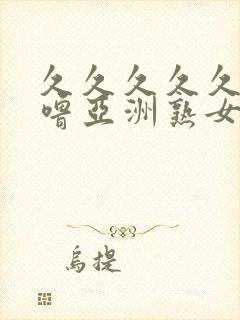 久久久久久
噜亞洲熟女
烏提